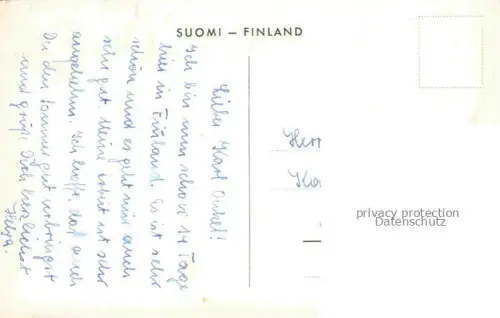 SUOMI – FINLAND
Lieber Karl Onkel!
Ich bin nun schon 14 Tage
hier in Finland. Es ist sehr
schön und es geht mir auch
sehr gut. Meine Arbeit ist sehr
angenehm. Ich hoffe, daß auch
Du den Sommer gut verbringst
und grüße Dich herzlichst
Helga.
Herr
privacy protection
Datenschutz